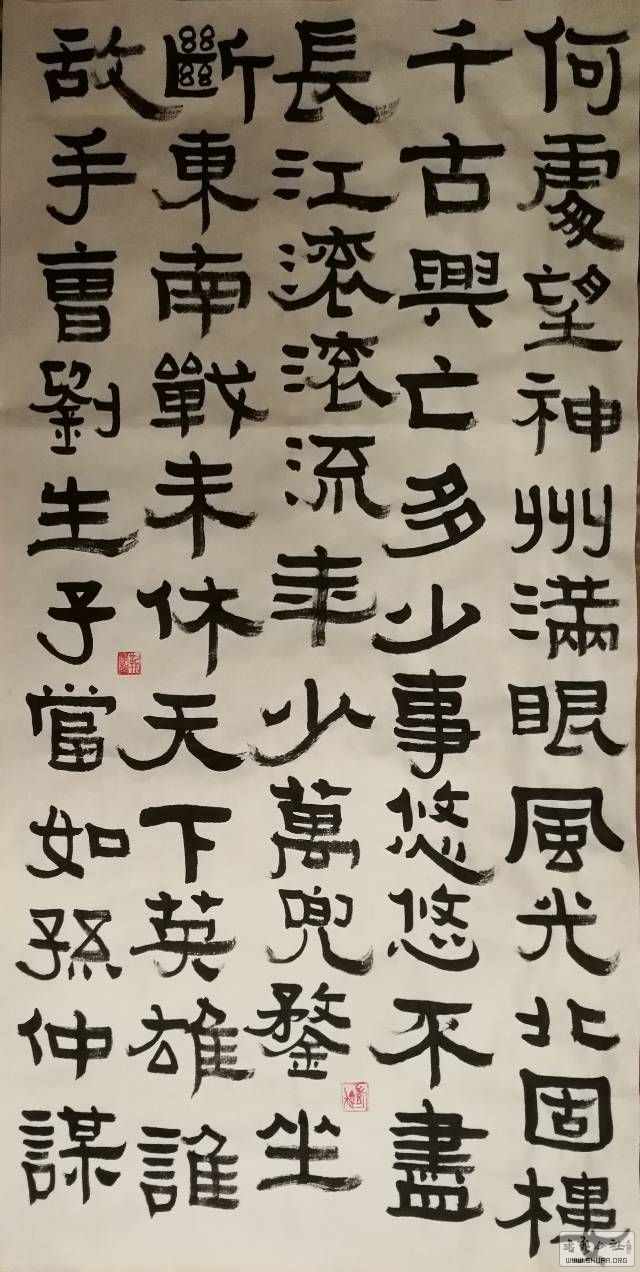 何處望神州滿眼風光北固樓
千古興亡多少事悠悠不盡
長江滚滚流年少萬兜鍪坐
斷東南戰未休天下英雄誰
敌手曹劉生子當如孫仲謀
WWW.SHUFA.ORG